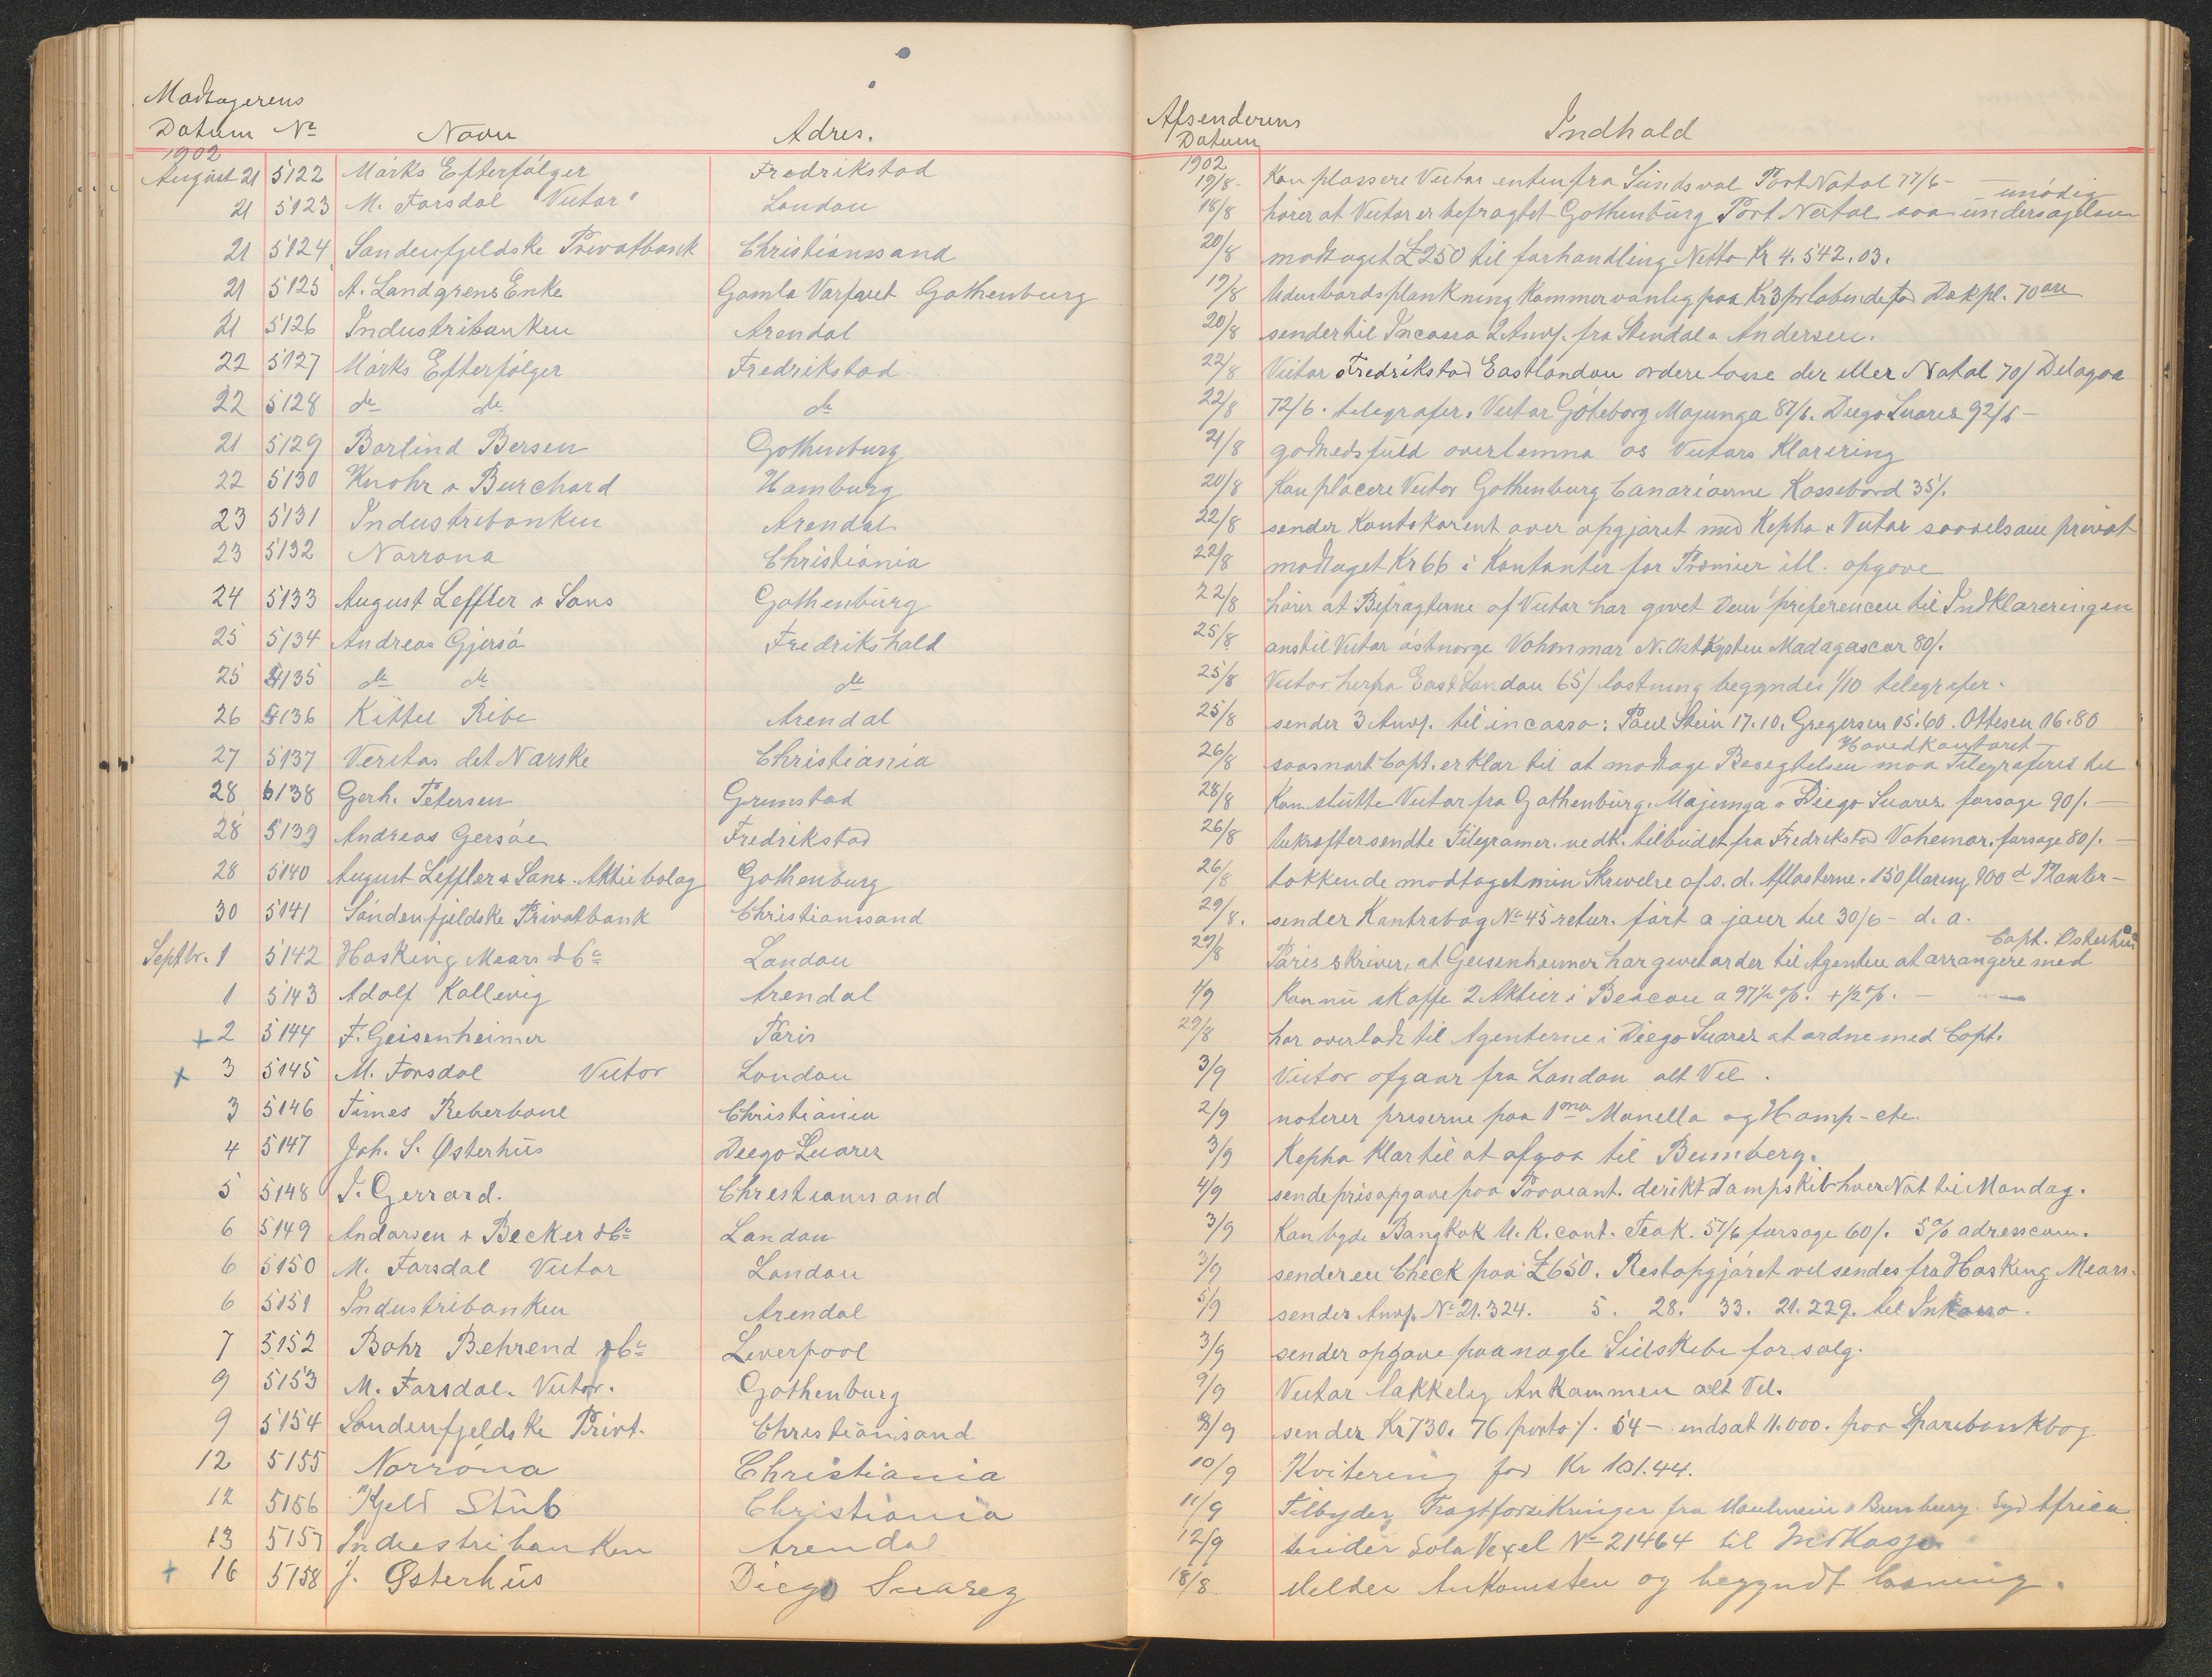 Modtagerens
Datum No Navn Adres.
1902
August 21 5122 Mörks Efterfölger Fredrikstad
21 5123 M. Torsdal "Victor" London
21 5124 Søndenfjeldske Privatbank Christianssand
21 5125 A. Landgrens Enke Gamla Varfvet Gothenburg
21 5126 Industribanken Arendal
22 5127 Mörks Efterfölger Fredrikstad
22 5128 do do do
21 5129 Barlind Bersen Gothenburg
22 5130 Knohr & Burchard Hamburg
23 5131 Industribanken Arendal
23 5132 Norrona Christiania
24 5133 August Leffler & Sons Gothenburg
25 5134 Andreas Gjersö Fredrikshald
25 5135 do do do
26 5136 Kittel Ribe Arendal
27 5137 Veritas det Norske Christiania
28 5138 Gerh. Petersen Grimstad
28 5139 Andreas Gersöe Fredrikstad
28 5140 August Leffler & Sons Aktiebolag Gothenburg
30 5141 Söndenfjeldske Privatbank Christianssand
Septbr. 1 5142 Hosking Mears & Co London
1 5143 Adolf Kallevig Arendal
+ 2 5144 F. Geisenheimer Paris
x 3 5145 M. Torsdal Victor London
3 5146 Times Reberbane Christiania
4 5147 Joh. S. Østerhüs Diego Suarez
5 5148 J. Gerrard. Christianssand
6 5149 Andorsen & Becker & Co London
6 5150 M. Torsdal Victor London
6 5151 Industribanken Arendal
7 5152 Bahr Behrend & Co Liverpool
9 5153 M. Torsdal. Victor. Gothenburg
9 5154 Söndenfjeldske Privt. Christiansand
12 5155 Norröna Christiania
12 5156 Kjeld Stüb Christiania
13 5157 Industribanken Arendal
+ 16 5158 J. Østerhüs Diego Suarez
Afsenderens
Datum Indhold
1902
19/8. Kan plassere Victor enten fra Sündsval Port Natal 77/6 -
unödig
18/8 hörer at Victor er befragtet Gothenbürg Port Natal saa undersögelsen
20/8 modtaget £250 til forhandling Netto Kr 4.542.03.
19/8 Udenbordsplankning kommer vanlig paa Kr 3 pr löbende fod Dækpl. 70 øre
20/8 sender til Incasso 2 Anv. fra Stendal & Andersen.
22/8 Victor Fredrikstad Eastlondon ordere losse der eller Natal 70/ Delagoa
22/8 72/6. telegrafer. Victor Göteborg Majunga 87/6. Diego Suarez 92/6 -
21/8 godhedsfuld overlemna os Victors Klarering
20/8 Kan placere Victor Gothenburg Canariøerne Kassebord 35/.
22/8 sender Kontokorent over opgjøret med Kepha & Victor saavelsom privat
22/8 modtaget Kr 66 i Kontanter for Præmier ifl. opgave
22/8 hörer at Befragterne af Victor har givet Dem preferencen til Indklareringen
25/8 anstil Victor östnorge Vohmmar N. Ostkysten Madagascar 80/.
25/8 Victor herfra East London 65/ lastning begyndes 1/10 telegrafer.
25/8 sender 3 Anv. til incasso: Poul Stein 17.10. Gregersen 15.60. Ottesen 16.80
Hovedkontoret
26/8 saasnart Capt. er klar til at modtage Besegtelsen maa Telegraferes til
28/8 Kan slütte Victor fra Gothenbürg. Majunga & Diego Suarez forsøge 90/. -
26/8 bekræfter sendte Telegramer. vedk. tilbüdet fra Fredrikstad Vohemar. forsøge 80/. -
26/8 takkende modtaget min Skrivelse af s.d. Aflasterne. 150 200 d Planker -
29/8. sender Kontrabog No 45 retur. fört a jour til 30/6 - d.a.
Capt. Osterhüs
29/8 Paris skriver, at Geisenheimer har givet order til Agenten at arrangere med
1/9 Kan nü skaffe 2 Aktier i Beacon a 97½ %. + ½ %. -
29/8 har overladt til Agenterne i Diego Suarez at ordne med Capt.
3/9 Victor afgaar fra London alt Vel.
2/9 noterer priserne paa 1ma Manella og Hamp - etc.
3/9 Kepha klar til at afgaa til Bunnberg.
4/9 sende prisopgave paa Proviant. derikt Dampskib hver Nat til Mandag.
3/9 Kan byde Bangkok U.K. cont. Teak. 57/6 forsøge 60/. 5% adresscom.
3/9 sender en Check paa £650. Restopgjøret vil sendes fra Hosking Mears.
5/9 sender Anv. No 21.324. 5. 28. 33. 21.229. til Inkasso.
3/9 sender opgave paa nogle Seilskibe for salg.
9/9 Victor lykkelig Ankommen alt Vel.
8/9 sender Kr 730.76 porto /. 54 - indsat 11.000. paa Sparebankbog
10/9 Kvitering for Kr 101.44.
11/9 Tilbyder Fragtforsikringer fra Moulmein & Bunbury. Syd Africa
12/9 sender Sola Vexel No 21464 til Indkasso
18/8. Melder Ankomsten og begyndt losning.